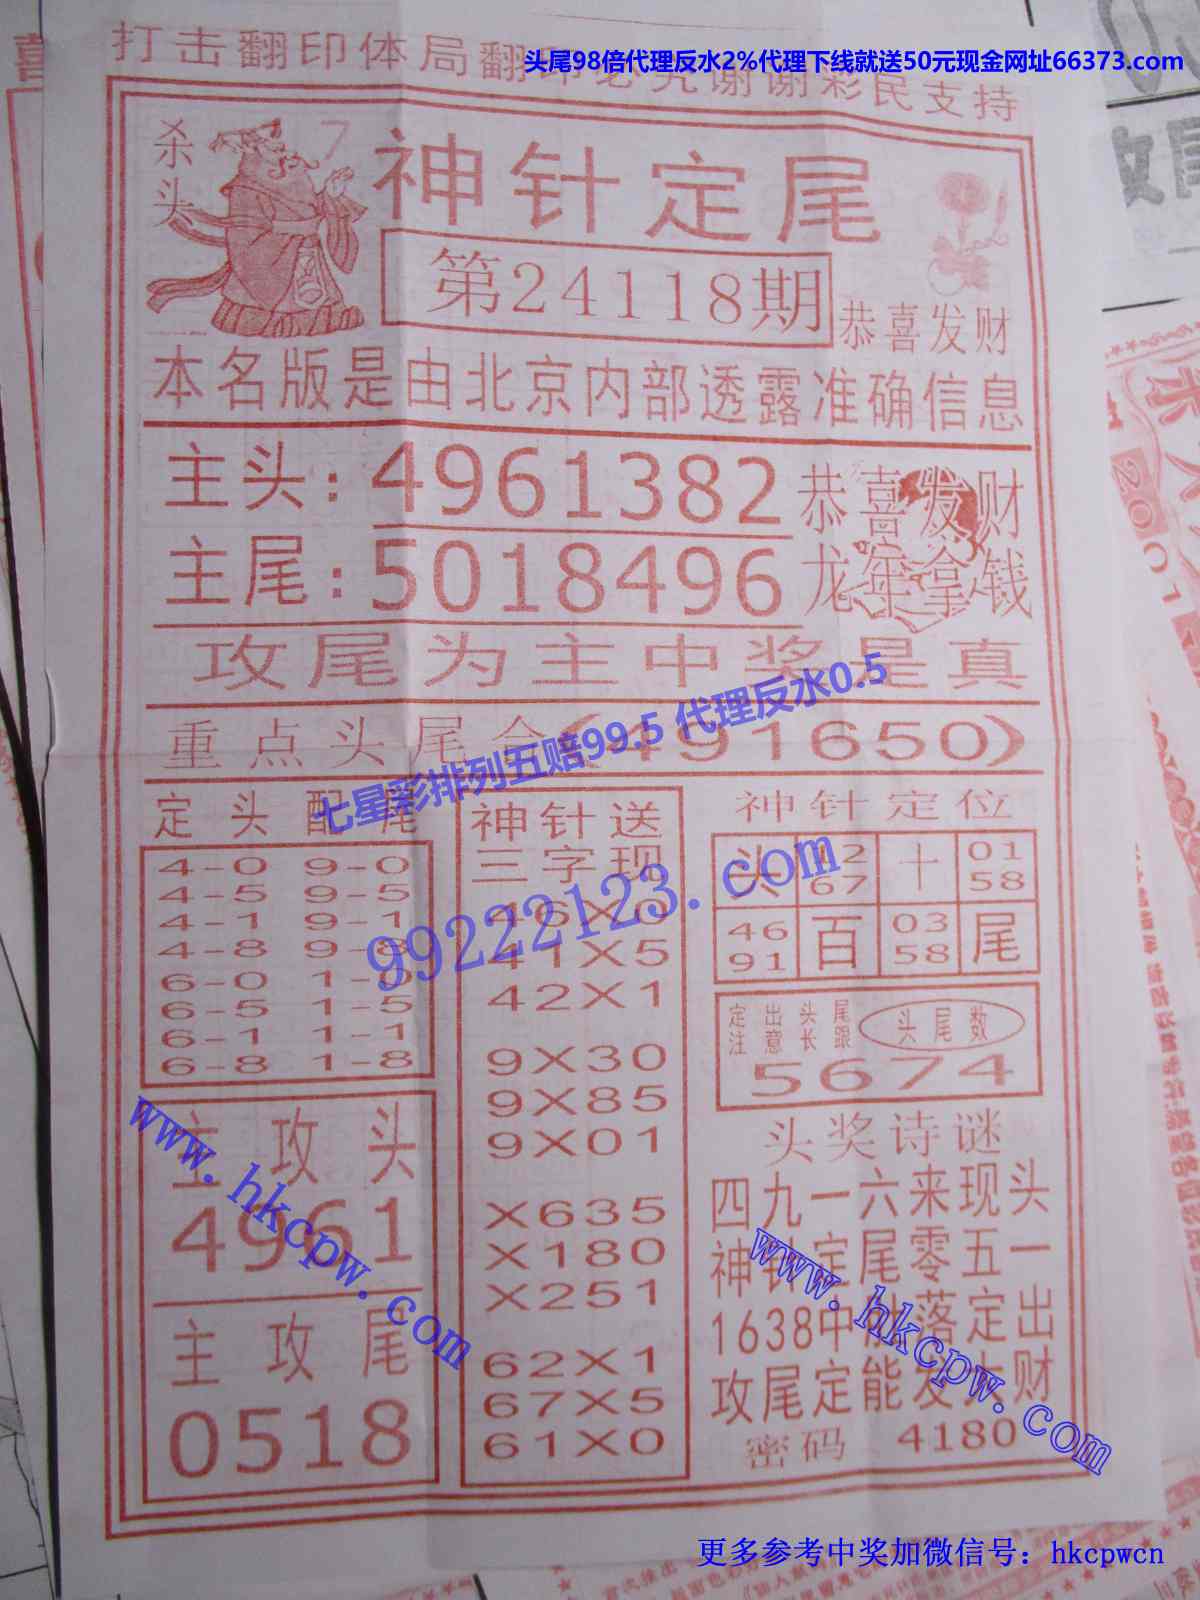 打击翻印体局翻印必究谢谢彩民支持
头尾98倍代理反水2%代理下线就送50元现金网址66373.com
杀头
7
神针定尾
第24118期
恭喜发财
本名版是由北京内部透露准确信息
主头:4961382
主尾:5018496
恭喜发财
龙年拿钱
攻尾为主中奖是真
重点头尾合(491650)
七星彩排列五赔99.5 代理反水0.5
99222123.com
定头配尾
4-0 9-0
4-5 9-5
4-1 9-1
4-8 9-8
6-0 1-0
6-5 1-5
6-1 1-1
6-8 1-8
主攻头
4961
主攻尾
0518
神针送
三字现
46X0
41X5
42X1
9X30
9X85
9X01
X635
X180
X251
62X1
67X5
61X0
神针定位
头 12 十 01
67 58
46 百 03 尾
91 58
定出头尾
注意长跟
头尾数
5674
头奖诗谜
四九一六来现头
神针定尾零五一
1638中肚落定出
攻尾定能发大财
密码 4180
www.hkcpw.com
www.hkcpw.com
更多参考中奖加微信号：hkcpwcn